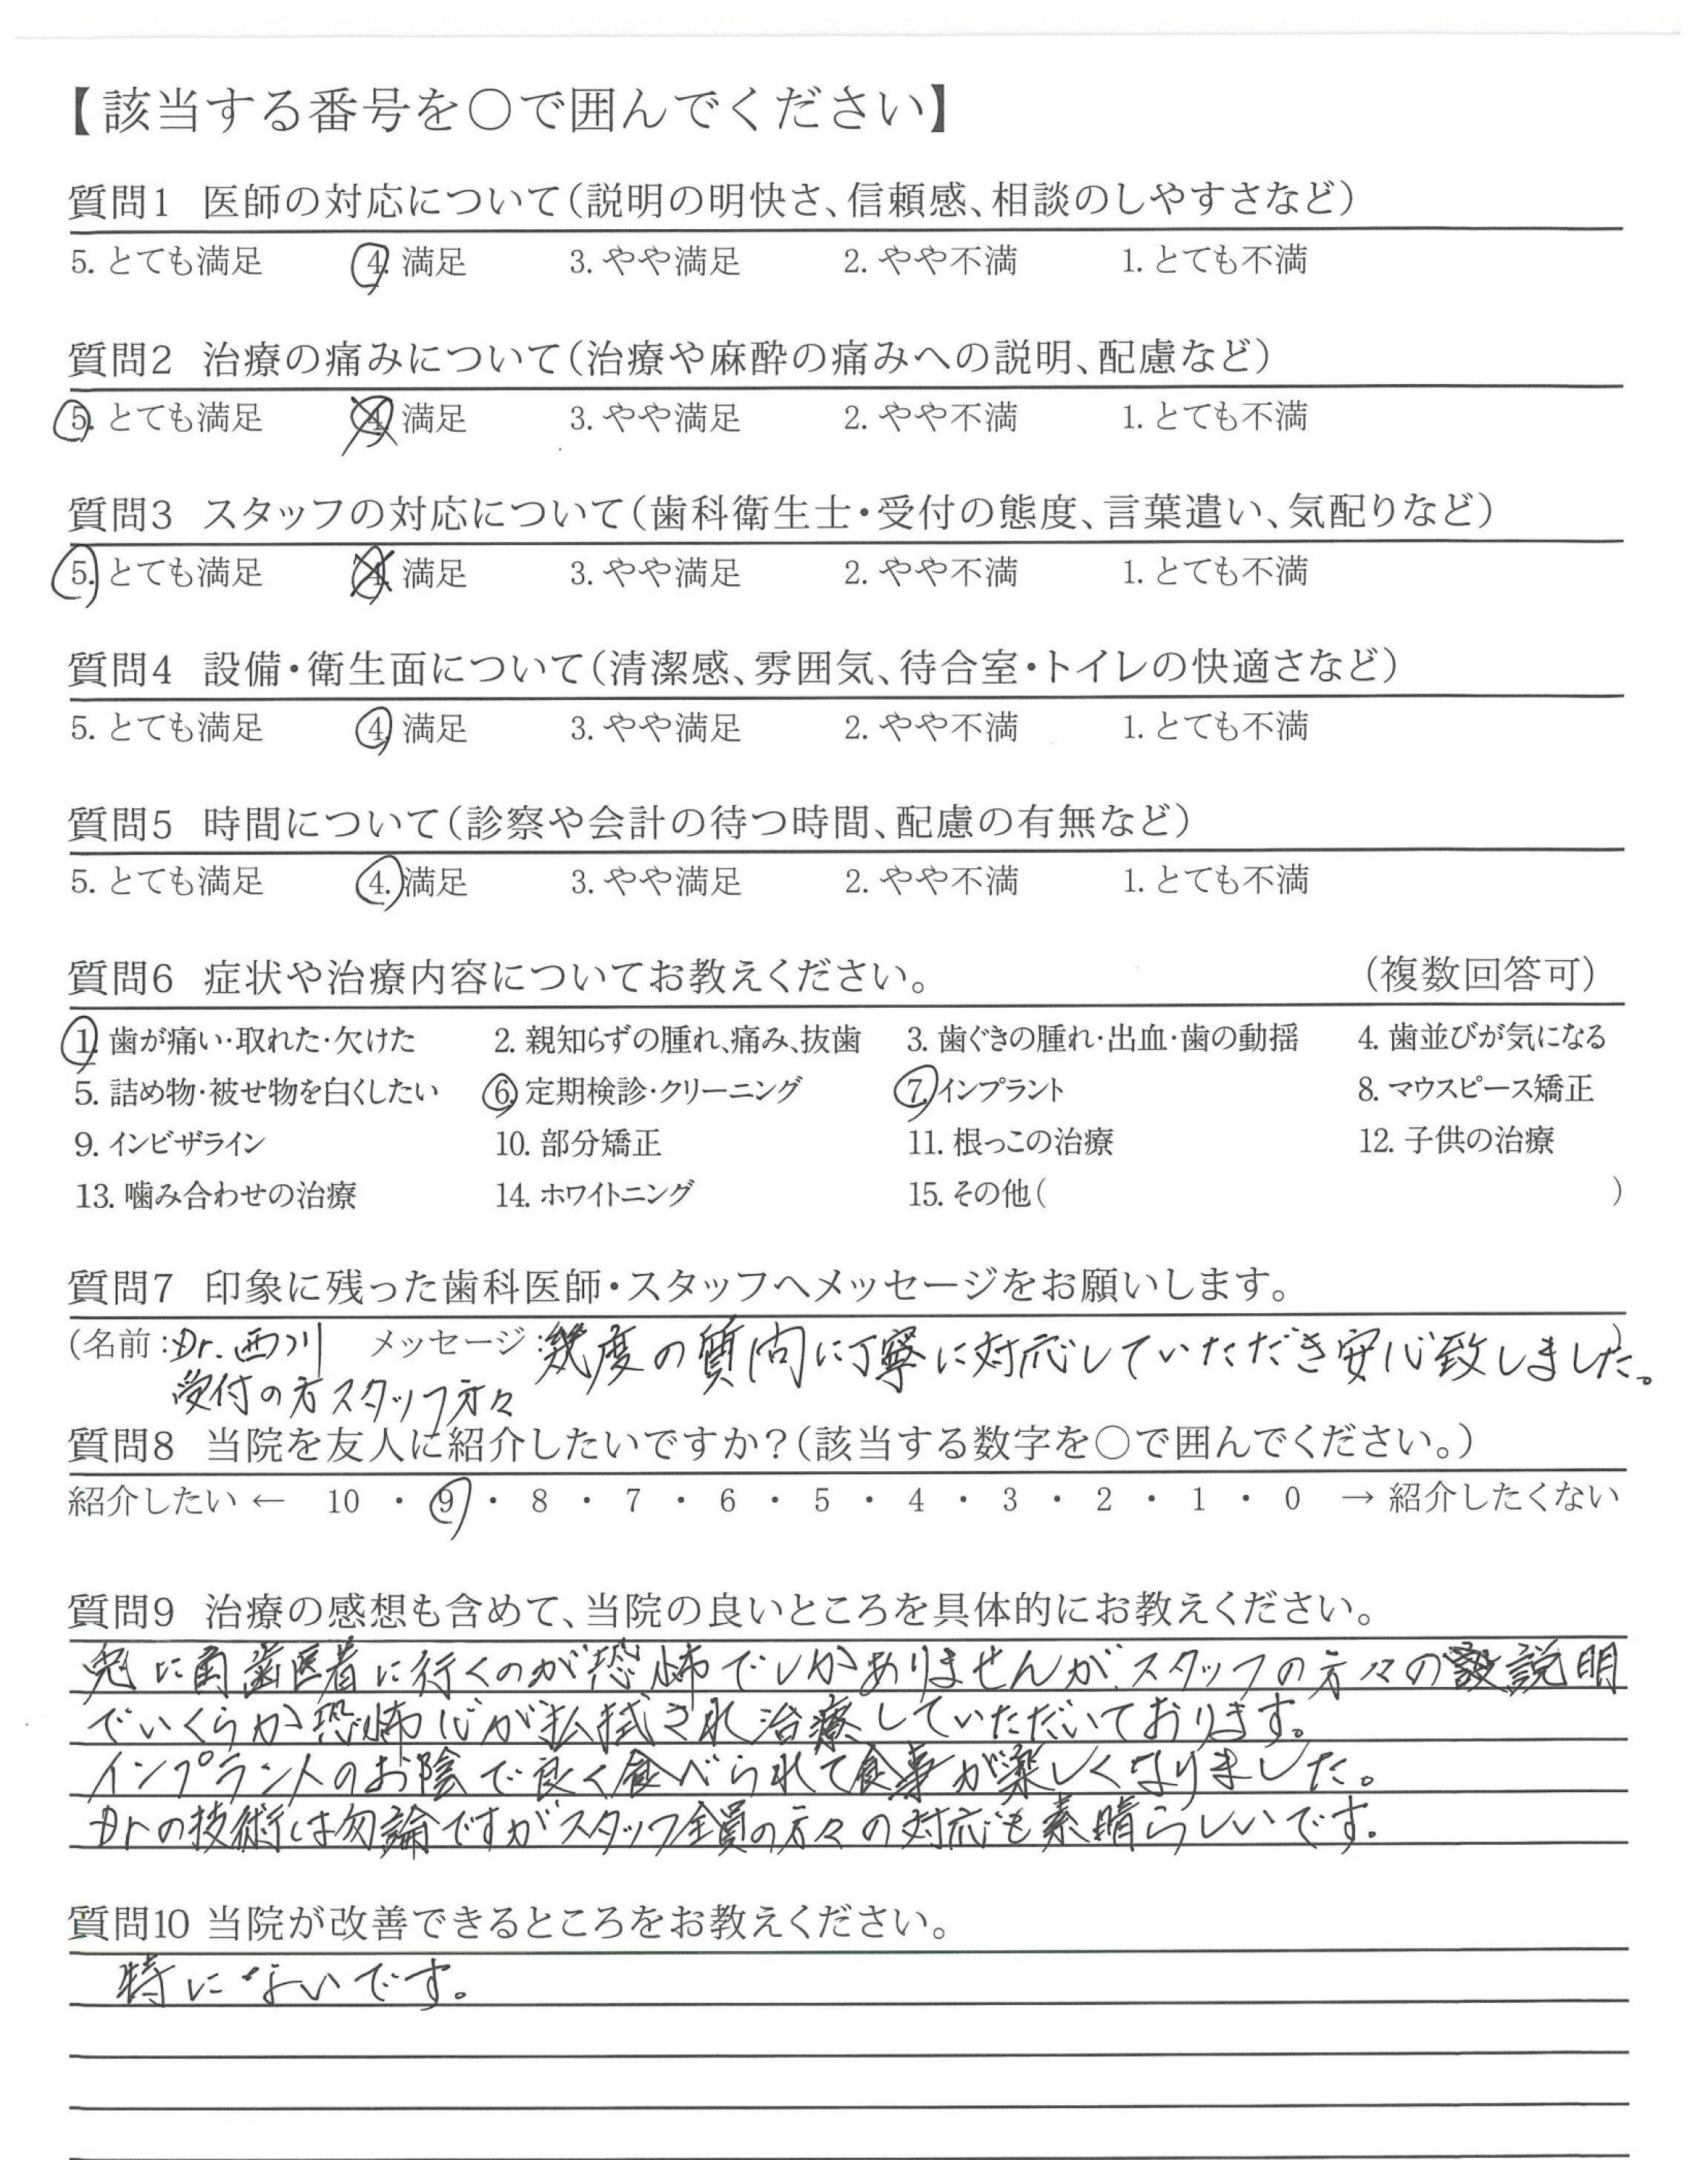 【該当する番号を○で囲んでください】
質問1 医師の対応について（説明の明快さ、信頼感、相談のしやすさなど）
5. とても満足 4. 満足 3. やや満足 2. やや不満 1. とても不満
質問2 治療の痛みについて（治療や麻酔の痛みへの説明、配慮など）
5. とても満足 4. 満足 3. やや満足 2. やや不満 1. とても不満
質問3 スタッフの対応について（歯科衛生士・受付の態度、言葉遣い、気配りなど）
5. とても満足 4. 満足 3. やや満足 2. やや不満 1. とても不満
質問4 設備・衛生面について（清潔感、雰囲気、待合室・トイレの快適さなど）
5. とても満足 4. 満足 3. やや満足 2. やや不満 1. とても不満
質問5 時間について（診察や会計の待つ時間、配慮の有無など）
5. とても満足 4. 満足 3. やや満足 2. やや不満 1. とても不満
質問6 症状や治療内容についてお教えください。 （複数回答可）
1. 歯が痛い・取れた・欠けた 2. 親知らずの腫れ、痛み、抜歯 3. 歯ぐきの腫れ・出血・歯の動揺 4. 歯並びが気になる
5. 詰め物・被せ物を白くしたい 6. 定期検診・クリーニング 7. インプラント 8. マウスピース矯正
9. インビザライン 10. 部分矯正 11. 根っこの治療 12. 子供の治療
13. 噛み合わせの治療 14. ホワイトニング 15. その他（ ）
質問7 印象に残った歯科医師・スタッフへメッセージをお願いします。
（名前：Dr. 西川 メッセージ：幾度の質問に丁寧に対応していただき安心致しました。）
受付の方スタッフ方々
質問8 当院を友人に紹介したいですか？（該当する数字を○で囲んでください。）
紹介したい ← 10 ・ 9 ・ 8 ・ 7 ・ 6 ・ 5 ・ 4 ・ 3 ・ 2 ・ 1 ・ 0 → 紹介したくない
質問9 治療の感想も含めて、当院の良いところを具体的にお教えください。
兎に角歯医者に行くのが恐怖でしかありませんが、スタッフの方々の説明
でいくらか恐怖心が払拭され治療していただいております。
インプラントのお陰で良く食べられて食事が楽しくなりました。
Drの技術は勿論ですがスタッフ全員の方々の対応も素晴らしいです。
質問10 当院が改善できるところをお教えください。
特にないです。